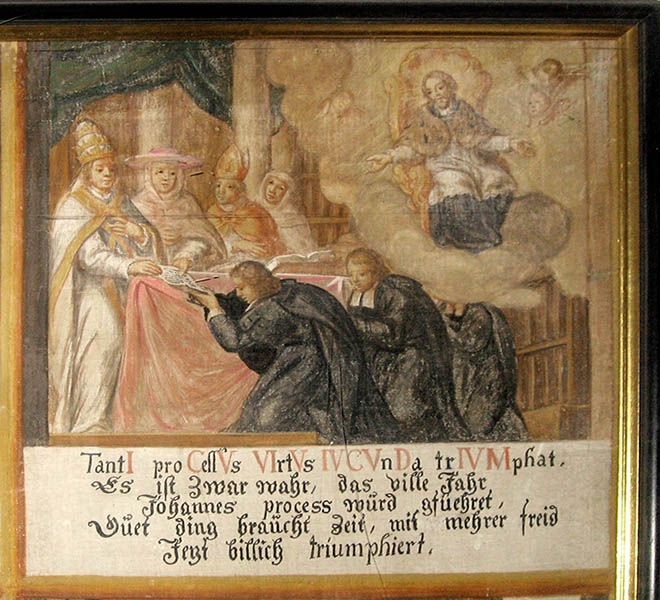 TantI pro CeſſVs VIrtVs IVCVnDa trIVMphat.
Es ist Zwar wahr, das ville Jahr
Johannes process würd gfüehret,
Guet ding braucht Zeit, mit mehrer freid
Jezt billich triumphiert.